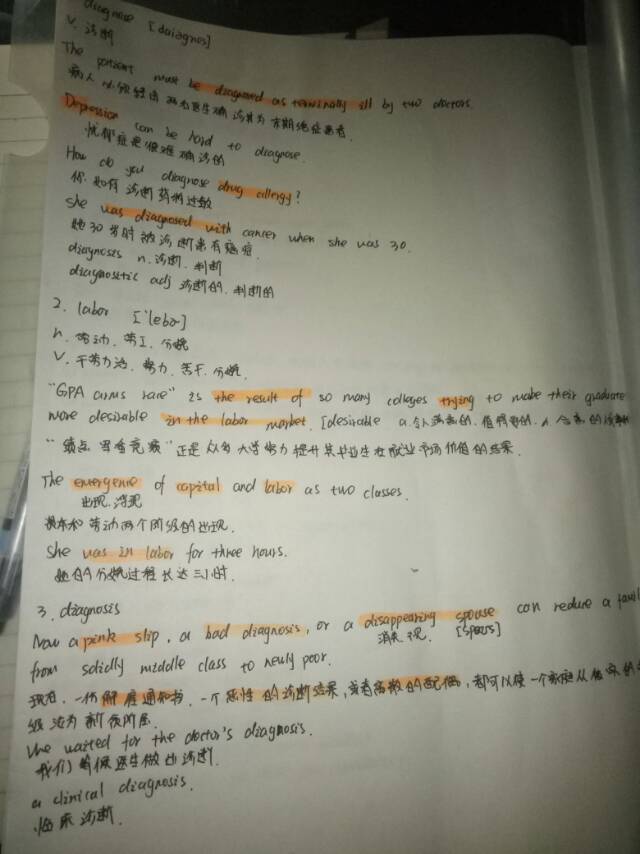 diagnose [daiagnes]
v. 诊断
The patient must be diagnosed as terminally ill by two doctors.
病人必须经由两名医生确诊其为末期绝症患者.
Depression can be hard to diagnose.
忧郁症是很难确诊的
How do you diagnose drug allergy?
你如何诊断药物过敏
she was diagnosed with cancer when she was 30.
她30岁时被诊断患有癌症.
diagnosis n. 诊断. 判断
diagnosetic adj 诊断的. 判断的
2. labor ['lebor]
n. 劳动. 劳工. 分娩
v. 干劳力活. 努力. 苦干. 分娩.
"GPA arms race" is the result of so many colleges trying to make their graduate
more desirable in the labor market. [desirable a. 令人满意的. 值得要的.
"绩点军备竞赛"正是众多大学努力提升其毕业生在就业市场价值的结果.
The emergence of capital and labor as two classes.
出现. 浮现
资本和劳动两个阶级的出现.
she was in labor for three hours.
她的分娩过程长达三小时.
3. diagnosis
Now a pink slip, a bad diagnosis, or a disappearing spouse can reduce a famil
消失. 现. [spaus]
from solidly middle class to newly poor.
现在. 一份解雇通知书. 一个恶性的诊断结果, 或者离散的配偶, 都可以使一个家庭从
级沦为新
We waited for the doctor's diagnosis.
我们等候医生做出诊断.
a clinical diagnosis.
临床诊断.